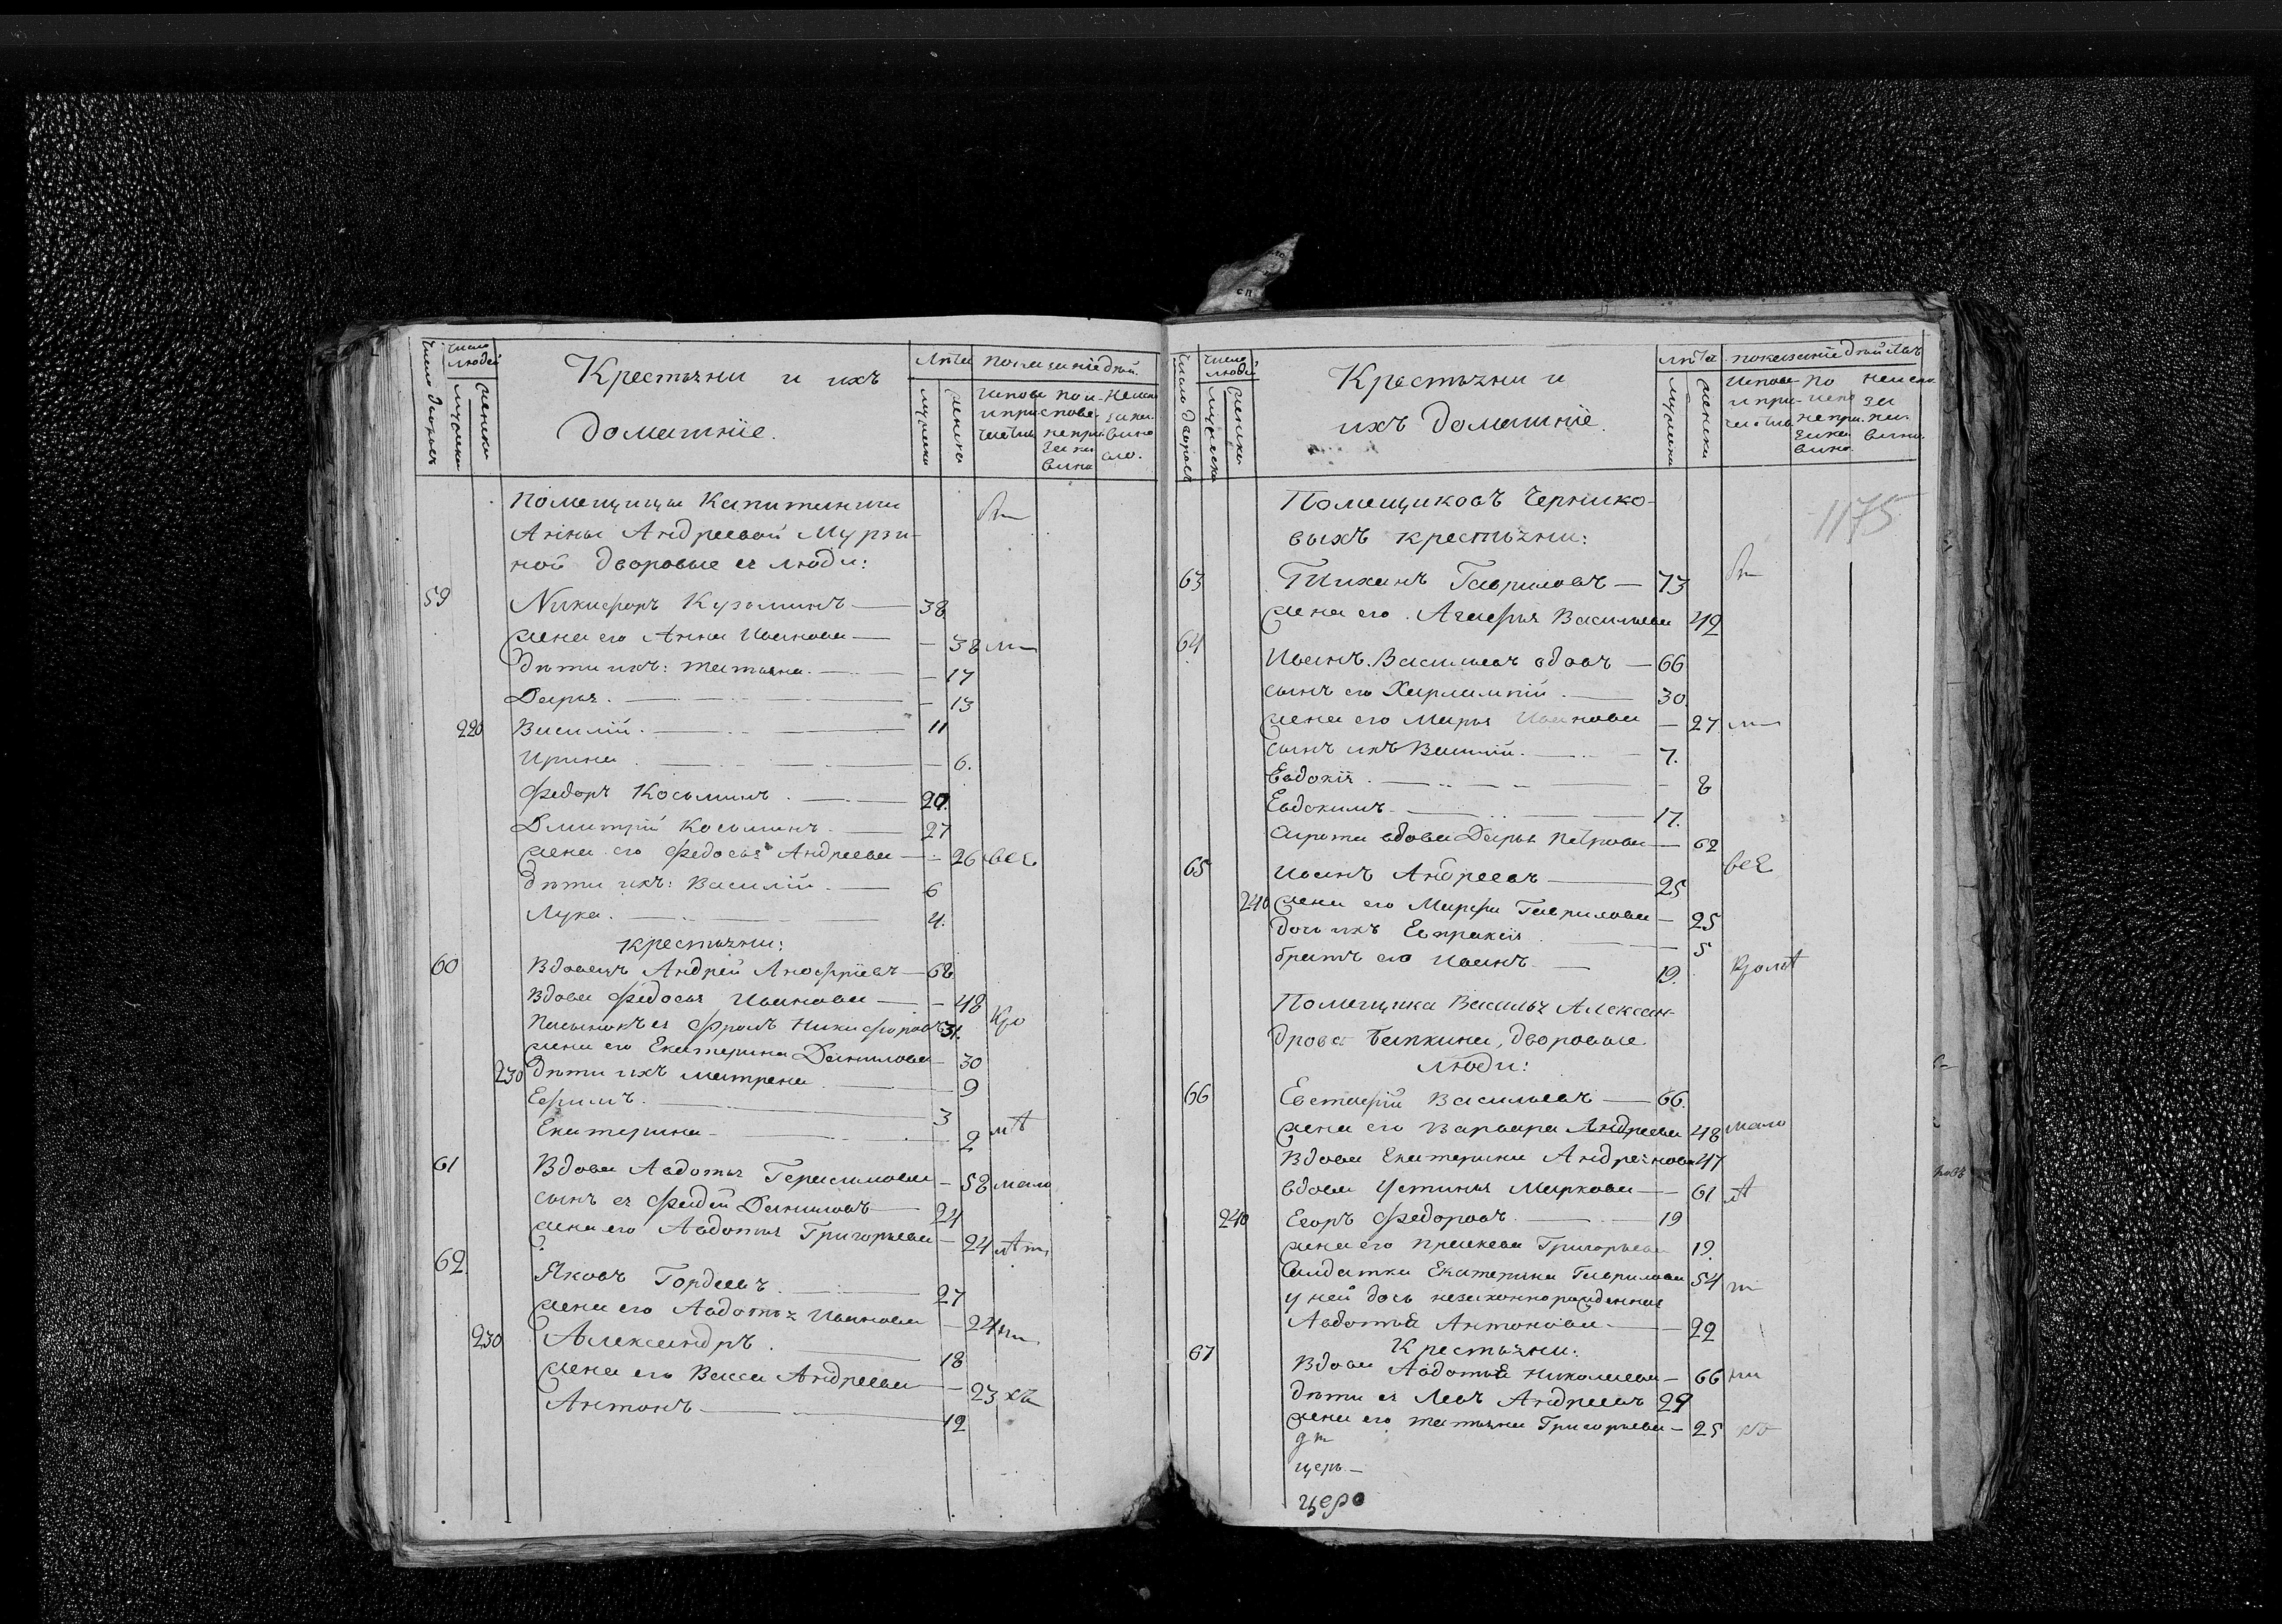 Число дворовъ
Число людей
мужеска
женска
Крестьяни и ихъ
домашніе.
Лѣта
мужеска
женска
показаніе дѣй.
Помещицы Капитанши
Анны Андреевой Мурзи-
ной дворовые ея люди:
59 Никифоръ Кузьминъ — 38
жена его Анна Иванова — 38
дѣти ихъ: Татьяна. — 17
Дарья. — 13
220 Василій. — 11
Ирина. — 6.
Федоръ Косьминъ. — 20.
Дмитрій Косьминъ. — 27
жена его Федосья Андреева — 26 все
дѣти ихъ: Василій. — 6
Лука. — 4.
крестьяни:
60 Вдовецъ Андрей Анофріевъ — 68
Вдова Федосья Иванова — 48
Пасынокъ ея Фролъ Никифоровъ 31.
жена его Екатерина Данилова — 30
230 дѣти ихъ Матрена. — 9
Ефимъ. — 3
Екатерина — 2
61 Вдова Авдотья Герасимова — 58 мало
сынъ ея Фадей Даниловъ — 24
жена его Авдотья Григорьева — 24 лѣт
62. Яковъ Гордеевъ. — 27
жена его Авдотья Иванова — 24
230 Александръ. — 18
жена его Васса Андреева — 23 хъ
Антонъ — 12
Число дворовъ
Число людей
мужеска
женска
Крестьяни и
ихъ домашніе.
лѣта
мужеска
женска
показаніе дѣйствъ
1175
Помещиковъ Чернико-
выхъ крестьяни:
63 Тиханъ Гавриловъ — 73
жена его. Агафья Васильева 42
64 Иванъ Васильевъ вдовъ — 66
сынъ его Харлампій. — 30
жена его Марья Иванова — 27
сынъ ихъ Василій. — 7.
Евдокія. — 8
Евдокимъ — 17.
сирота вдова Дарья Петрова — 62
все
65 Иванъ Андреевъ — 25
240 жена его Марфа Гаврилова — 25
дочь ихъ Евпраксія. — 5
братъ его Иванъ. — 19.
Помещика Василья Алексан-
дрова Бапкина, дворовые
люди:
66 Евстафій Васильевъ — 66.
жена его Варвара Андреева 48 мало
Вдова Екатерина Андреянова 47
вдова Устинья Маркова — 61 лѣ
240 Егоръ Федоровъ. — 19
жена его Праскева Григорьева 19.
Салдатка Екатерина Гаврилова 54
у ней дочь незаконнорожденная
Авдотья Антонова — 22
Крестьяни:
67 Вдова Авдотья Николаева — 66
дѣти ея Левъ Андреевъ 29
жена его Татьяна Григорьева — 25
церк —
церо